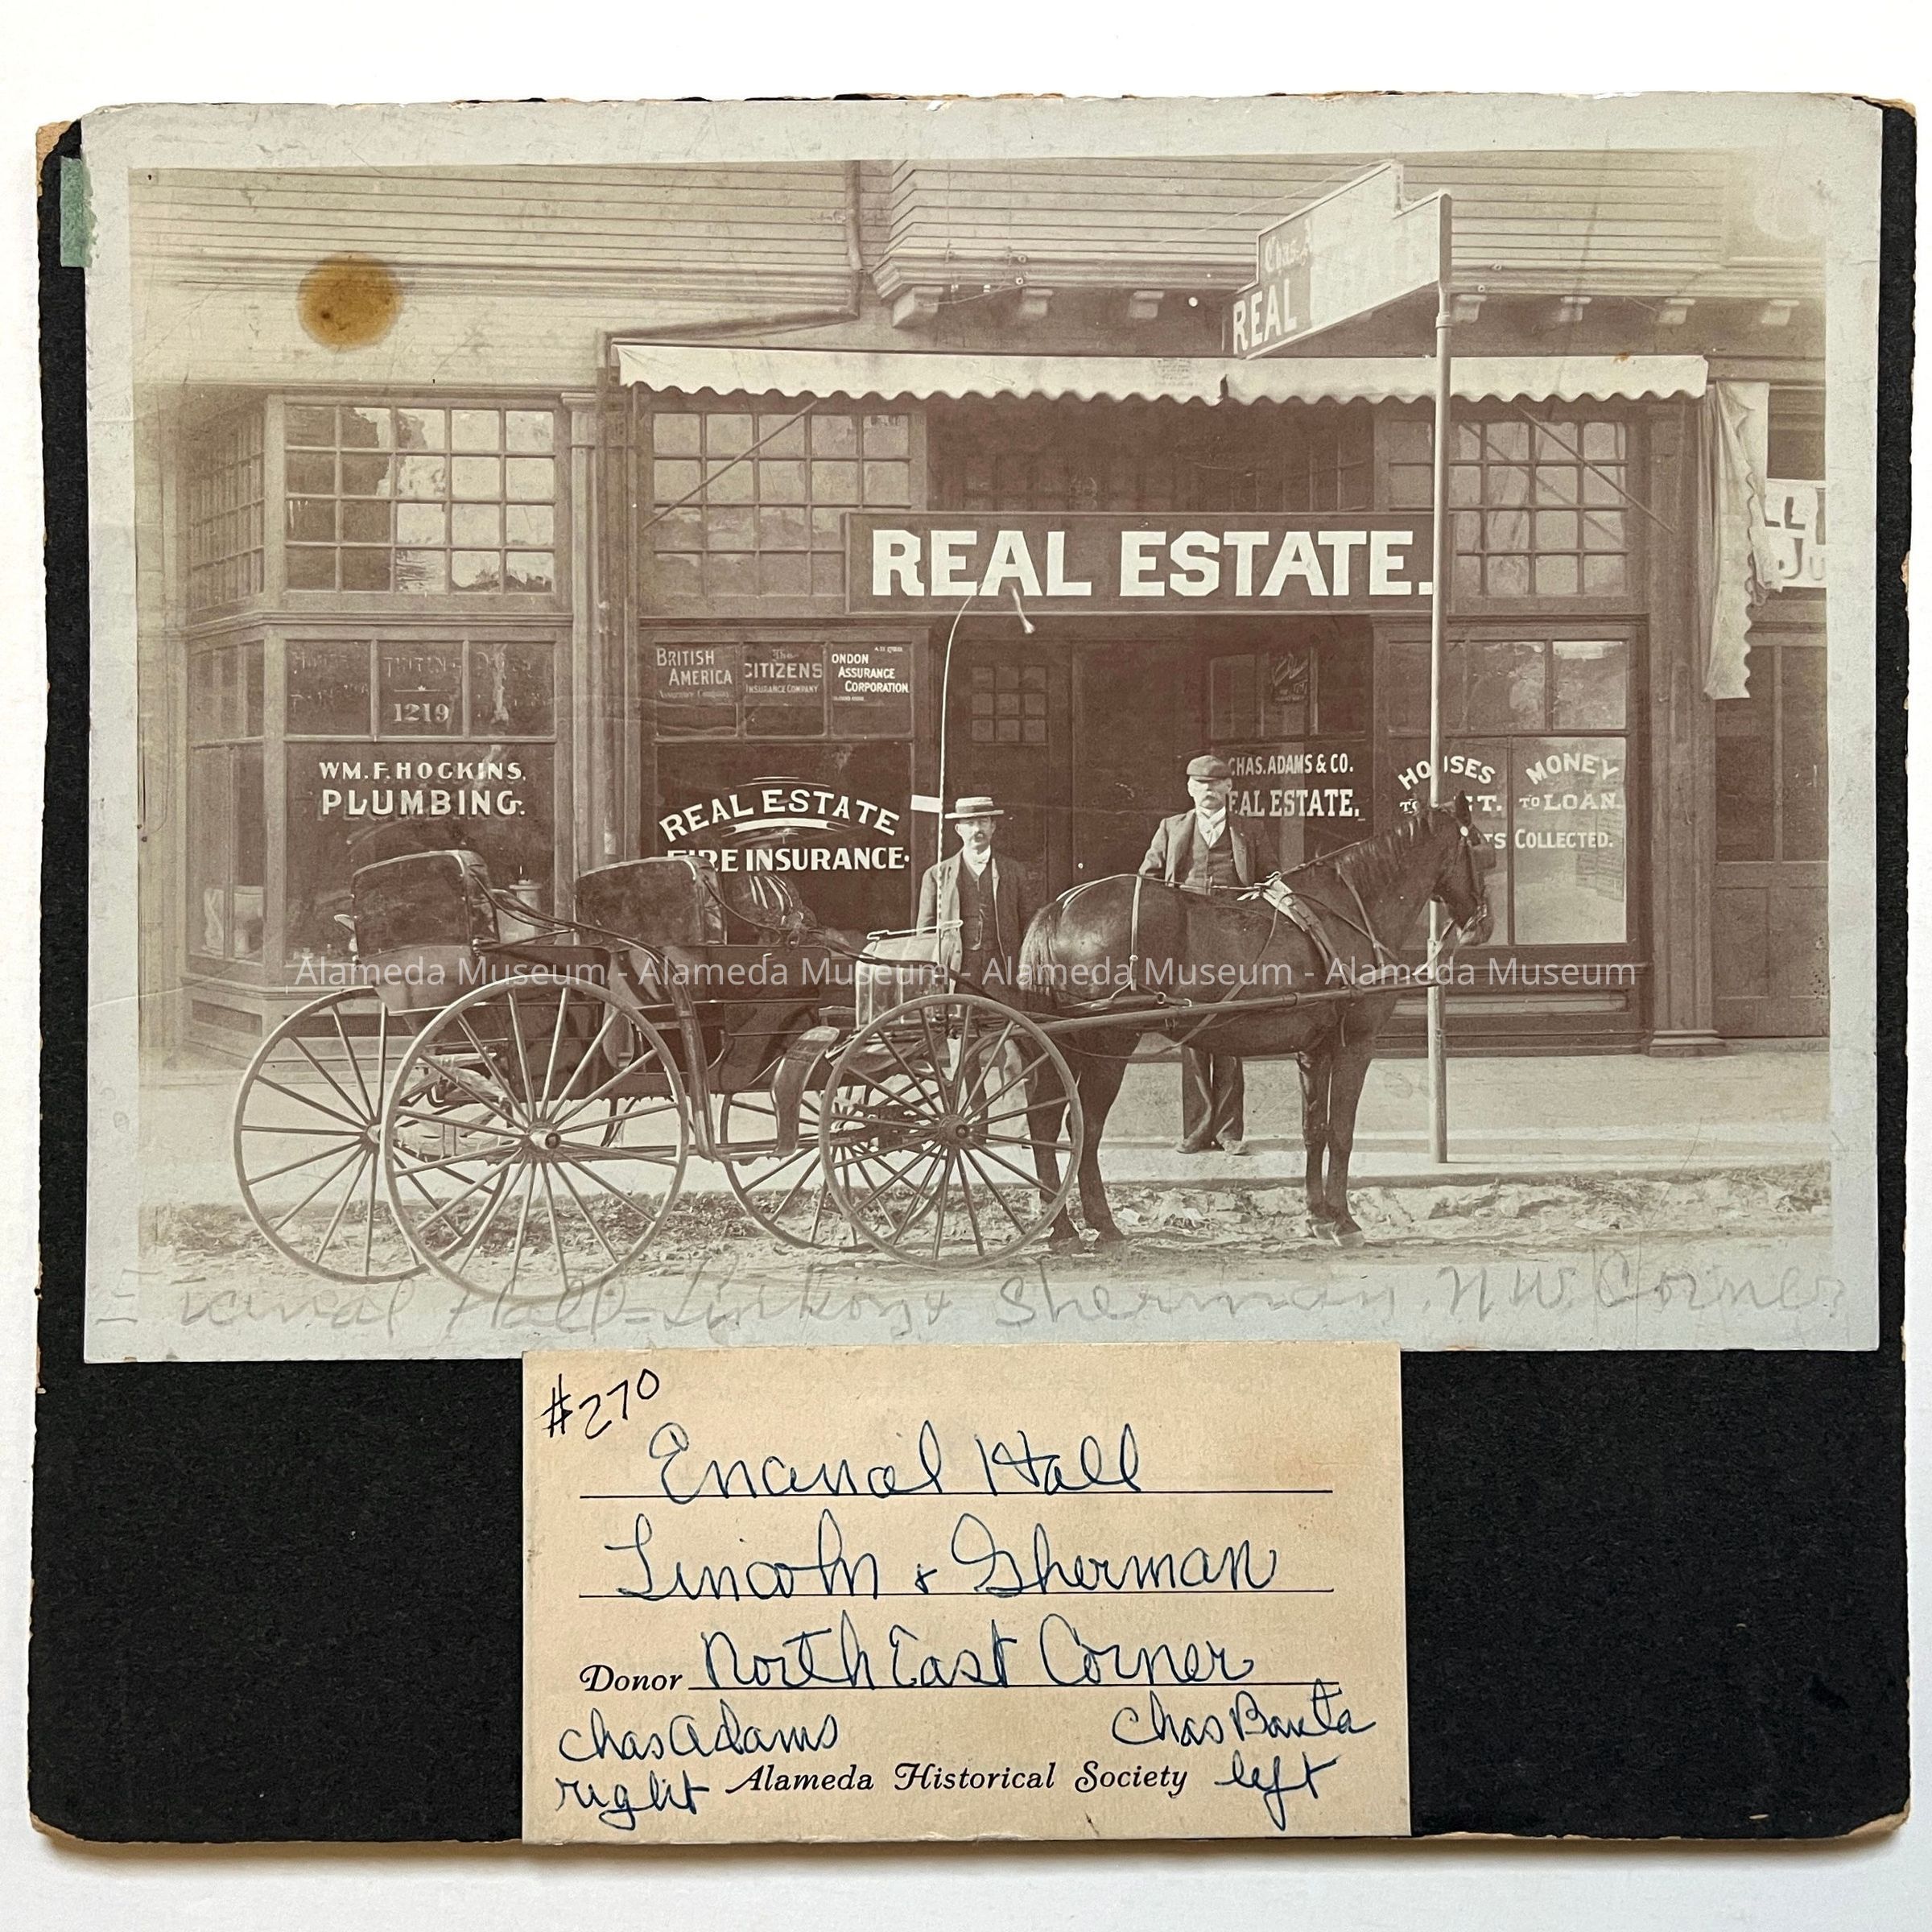 Chas. A
REAL
REAL ESTATE.
BRITISH
AMERICA
The
CITIZENS
INSURANCE COMPANY
ONDON
ASSURANCE
CORPORATION
1219
WM. F. HOCKINS,
PLUMBING.
REAL ESTATE
FIRE INSURANCE.
CHAS. ADAMS & CO.
EAL ESTATE.
HOUSES
TO ET.
MONEY
TO LOAN
TS COLLECTED.
Alameda Museum - Alameda Museum - Alameda Museum - Alameda Museum
Encinal Hall = Linkon & Sherman. N.W. Corner
#270
Encinal Hall
Lincoln & Sherman
Donor North East Corner
Chas Adams Chas Bauta
right Alameda Historical Society left